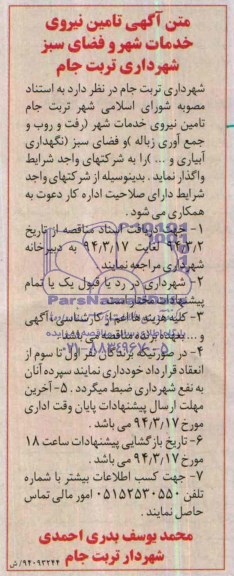 متن آگهی تامین نیروی
خدمات شهر و فضای سبز
شهرداری تربت جام
شهرداری تربت جام در نظر دارد به استناد
مصوبه شورای اسلامی شهر تربت جام
تامین نیروی خدمات شهر (رفت و روب و
جمع آوری زباله )و فضای سبز (نگهداری
آبیاری و ... )را به شرکتهای واجد شرایط
واگذار نماید . بدینوسیله از شرکتهای واجد
شرایط دارای صلاحیت اداره کار دعوت به
همکاری می شود .
۱- جهت دریافت اسناد مناقصه از تاریخ
۹۴/۳/۲ لغایت ۹۴/۳/۱۷ به دبیرخانه
شهرداری مراجعه نمایند.
۲- شهرداری در رد یا قبول یک یا تمام
پیشنهادات مختار است .
۳- کلیه هزینه ها اعم از کارشناسی ، آگهی
و ... بعهده برنده مناقصه می باشد .
۴- در صورتیکه برندگان نفر اول تا سوم از
انعقاد قرارداد خودداری نمایند سپرده آنان
به نفع شهرداری ضبط میگردد . ۵- آخرین
مهلت ارسال پیشنهادات پایان وقت اداری
مورخ ۹۴/۳/۱۷ می باشد .
۶- تاریخ بازگشایی پیشنهادات ساعت ۱۸
مورخ ۹۴/۳/۱۷ می باشد .
۷- جهت کسب اطلاعات بیشتر با شماره
تلفن ۰۵۱۵۲۵۳۰۵۵۰ امور مالی تماس
حاصل نمایند .
محمد یوسف پدری احمدی
شهردار تربت جام
۹۴۰۹۳۲۴۴/ش